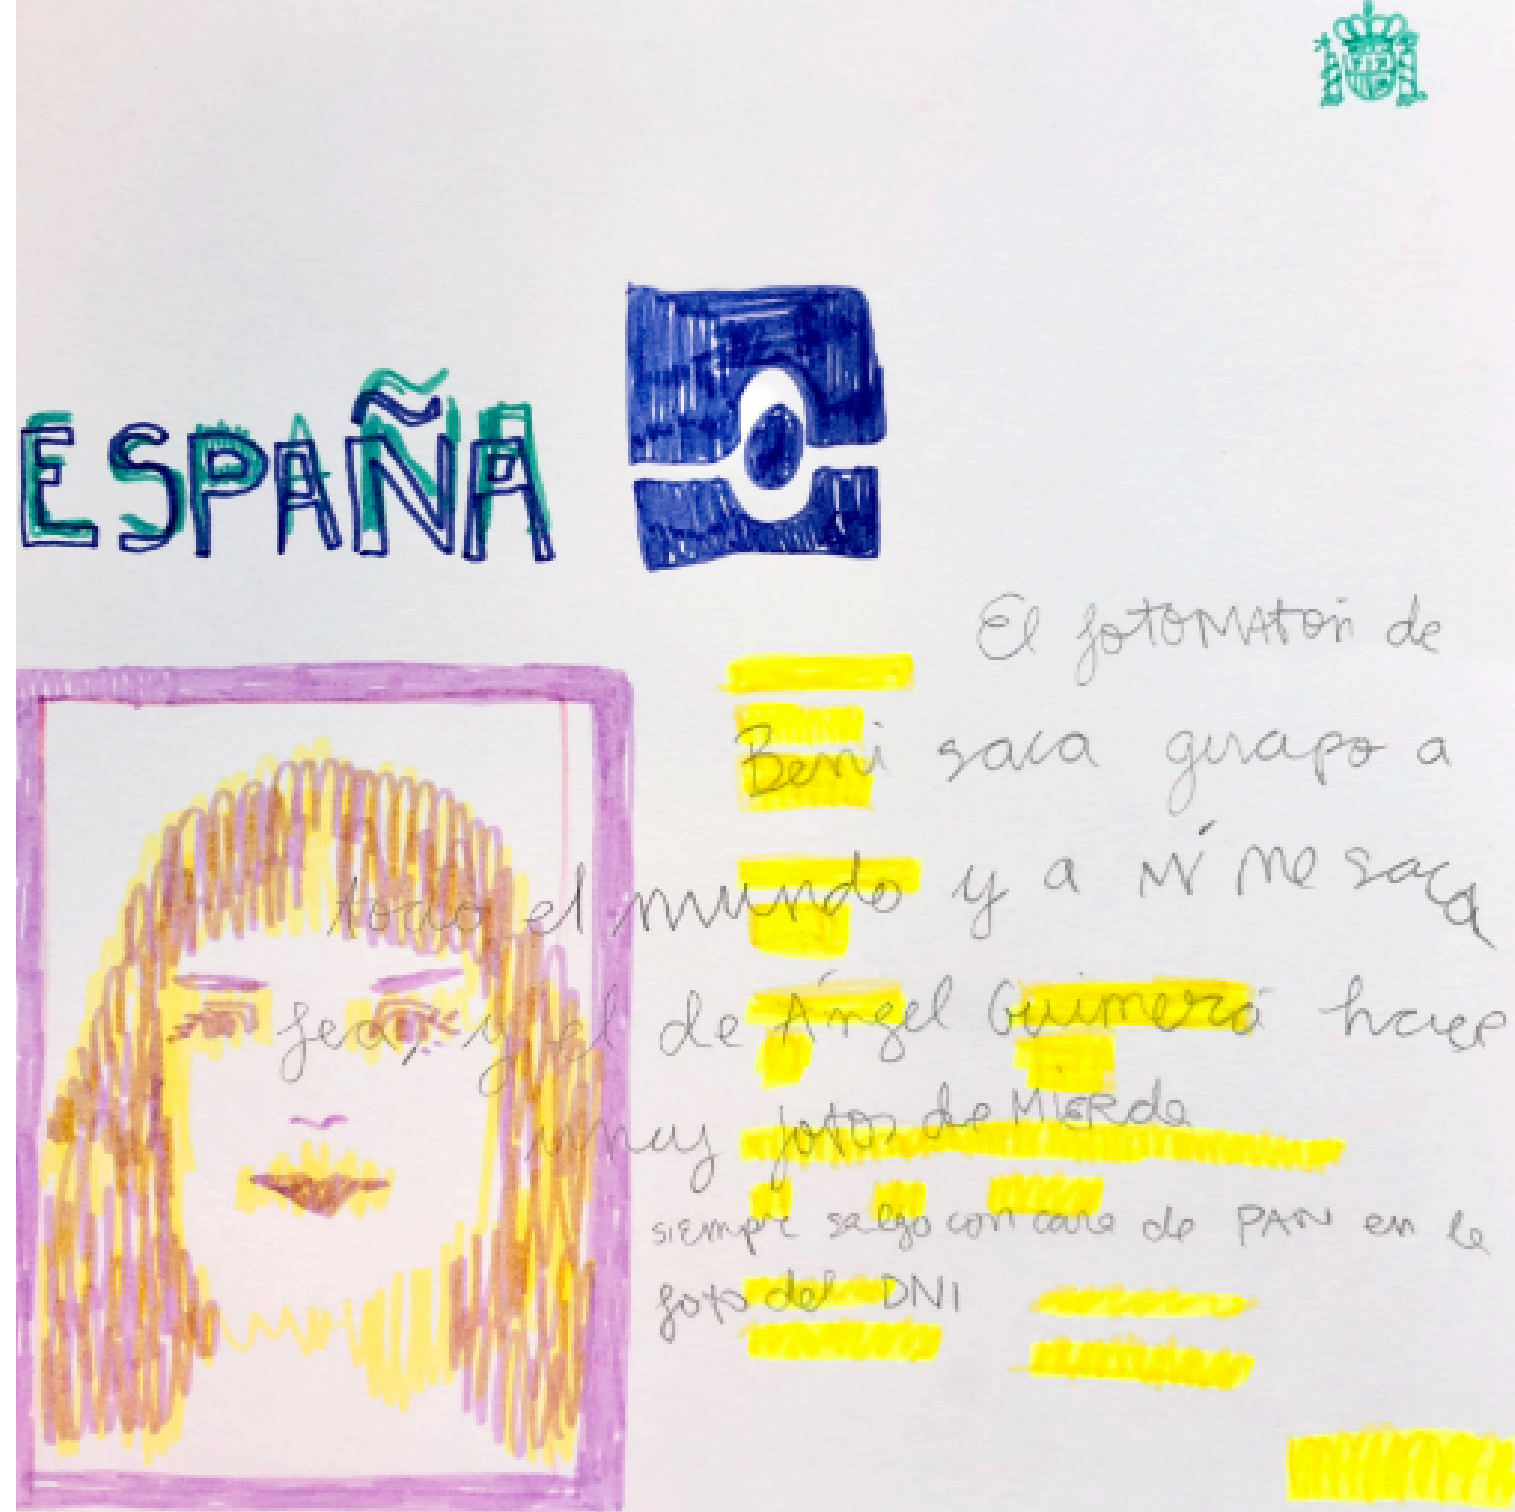 ESPAÑA
El fotoMAtón de
Beni saca guapo a
todo el mundo y a mí me saca
fea, y el de Ángel Guimerá hace
muy fotos de MIERda
siempre salgo con cara de PAN en la
foto del DNI